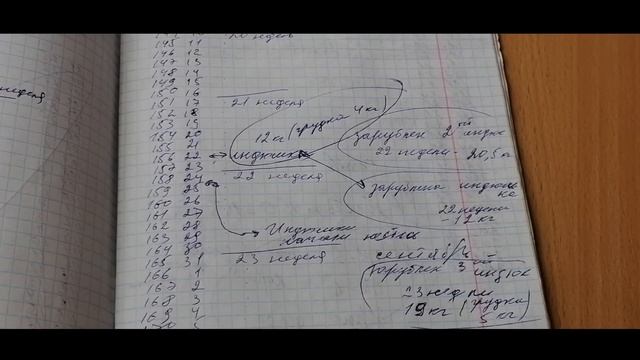 145 11
146 12
147 13
148 14
149 15
150 16
151 17
152 18
153 19
154 20
155 21
156 22
157 23
158 24
159 25
160 26
161 27
162 28
163 29
164 30
165 31
166 1
167 2
168 3
169 4
неделя
21 неделя
12 кг (грудка 4 кг)
зарублен 2ой индюк
22 недели - 20,5 к
индюшка
22 неделя
зарублена индюш
ка
22 недели
- 12 кг
Индюшки
начали
23 неделя
зарублен 3ий индюк
23 недели
19 кг (грудка
5 кг)